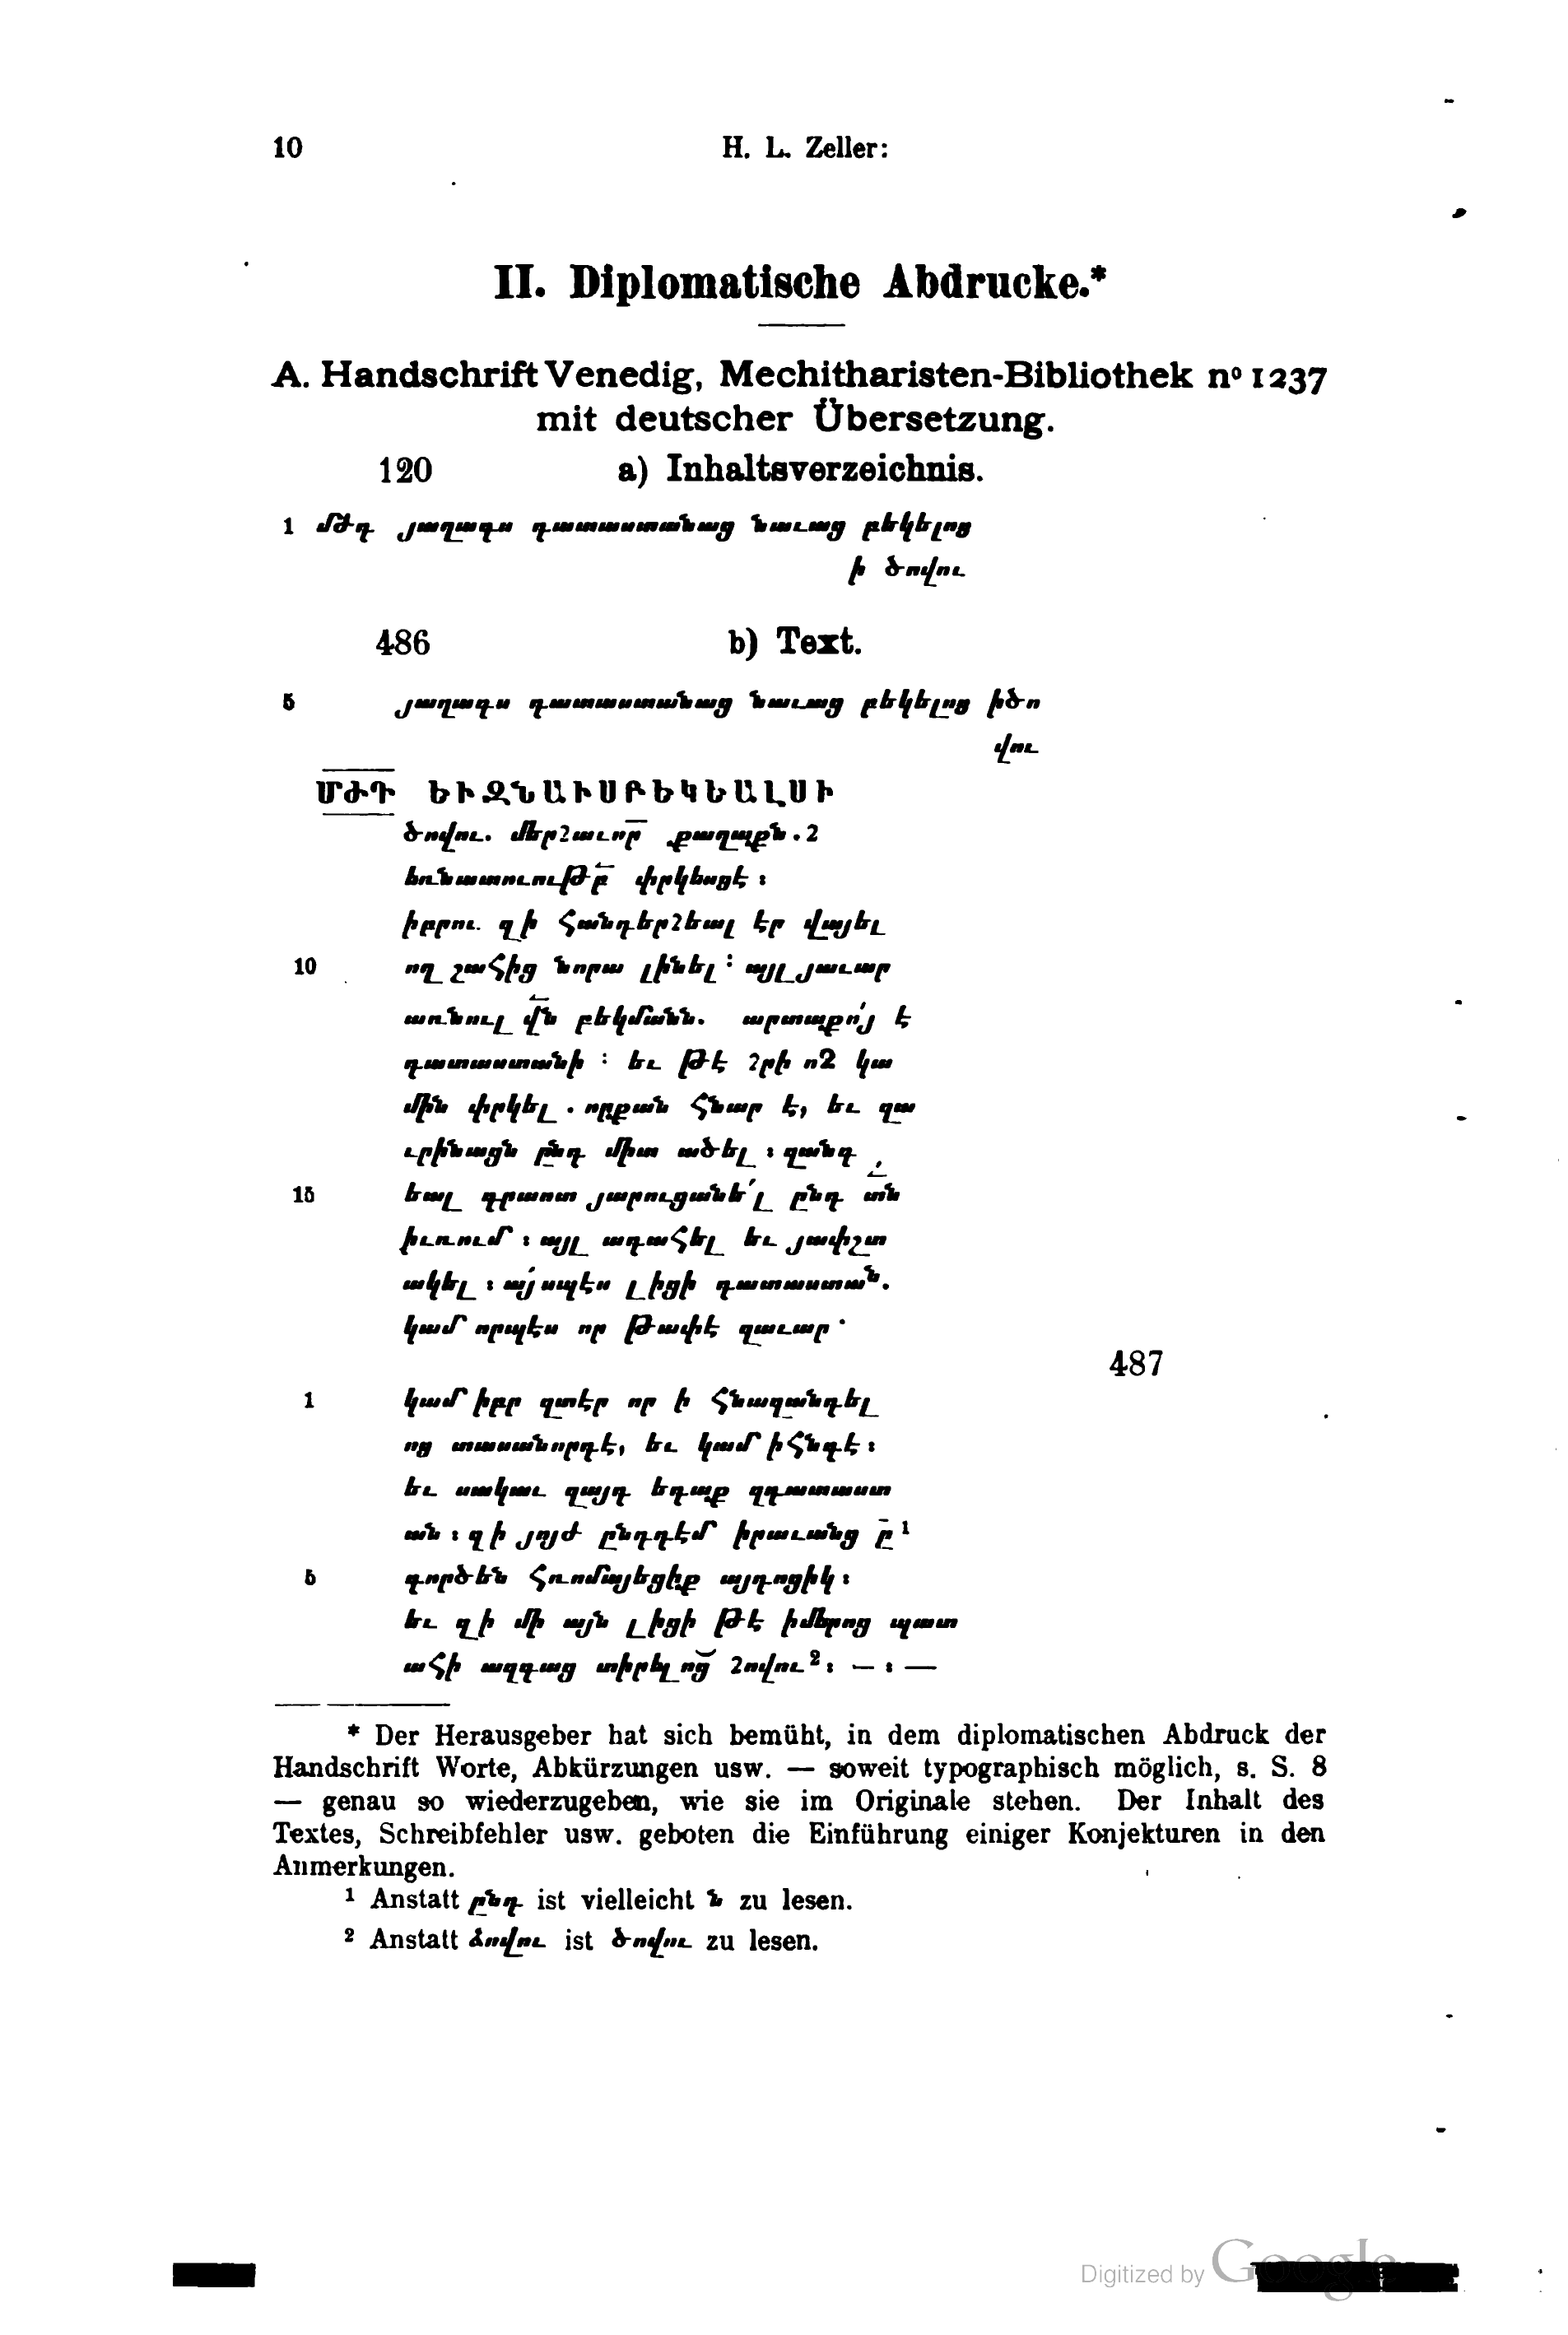 10
H. L. Zeller:
II. Diplomatische Abdrucke.*
A. Handschrift Venedig, Mechitharisten-Bibliothek nº 1237
mit deutscher Übersetzung.
120 a) Inhaltsverzeichnis.
1 մժդ յաղագս դատաստանաց նաւաց բեկելոց
ի ծովու
486 b) Text.
5 յաղագս դատաստանաց նաւաց բեկելոց իծո
վու
ՄԺԴ ԵՒԶՆԱՒՍԲԵԿԵԱԼՍԻ
ծովու. մերձաւոր քաղաքն. ձ
եռնատուութբ փրկեսցէ։
իբրու զի հանդերձեալ էր վայել
10 ող շահից նորա լինել։ այլ յաւար
առնուլ վն բեկմանն. արտաքո՛յ է
դատաստանի։ եւ թէ ձրի ոչ կա
մին փրկել. որքան հնար է, եւ զա
ւրինացն ընդ միտ ածել։ զանգ
15 եալ գրաստ յարուցանե՛լ ընդ տն
իւռում։ այլ ագահել եւ յափշտ
ակել։ այսպէս լիցի դատաստան.
կամ որպէս որ թափէ զաւար·
487
1 կամ իբր զտէր որ ի հնազանդել
ոց տասանորդէ, եւ կամ իհնգէ։
եւ սակաւ զայդ եդաք զդատաստ
ան։ զի յոյժ ընդդէմ իրաւանց ը¹
5 գործեն հռոմայեցիք այդոցիկ։
եւ զի մի այն լիցի թէ իմերոց պատ
ահի ազգաց տիրելոց ձովու²։ — ։ —
* Der Herausgeber hat sich bemüht, in dem diplomatischen Abdruck der
Handschrift Worte, Abkürzungen usw. — soweit typographisch möglich, s. S. 8
— genau so wiederzugeben, wie sie im Originale stehen. Der Inhalt des
Textes, Schreibfehler usw. geboten die Einführung einiger Konjekturen in den
Anmerkungen.
¹ Anstatt ընդ ist vielleicht ն zu lesen.
² Anstatt ձովու ist ծովու zu lesen.
Digitized by Google